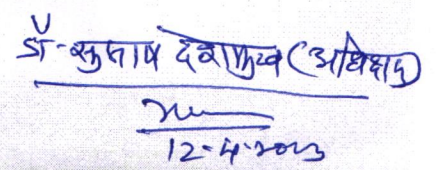 डॉ. सुभाष देशमुख (अधिक्षक)
12-4-2023